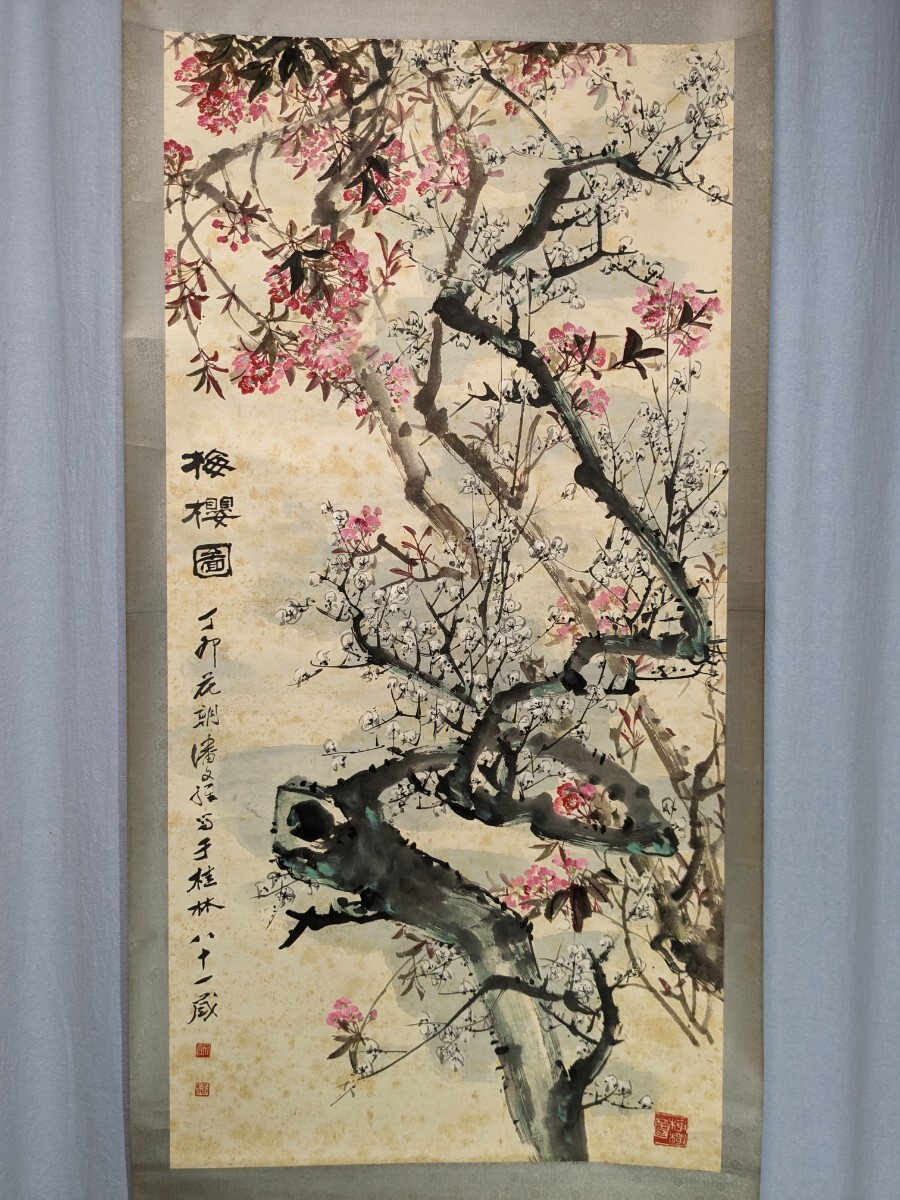 梅樱圖
丁卯花朝潘文经写于桂林八十一岁